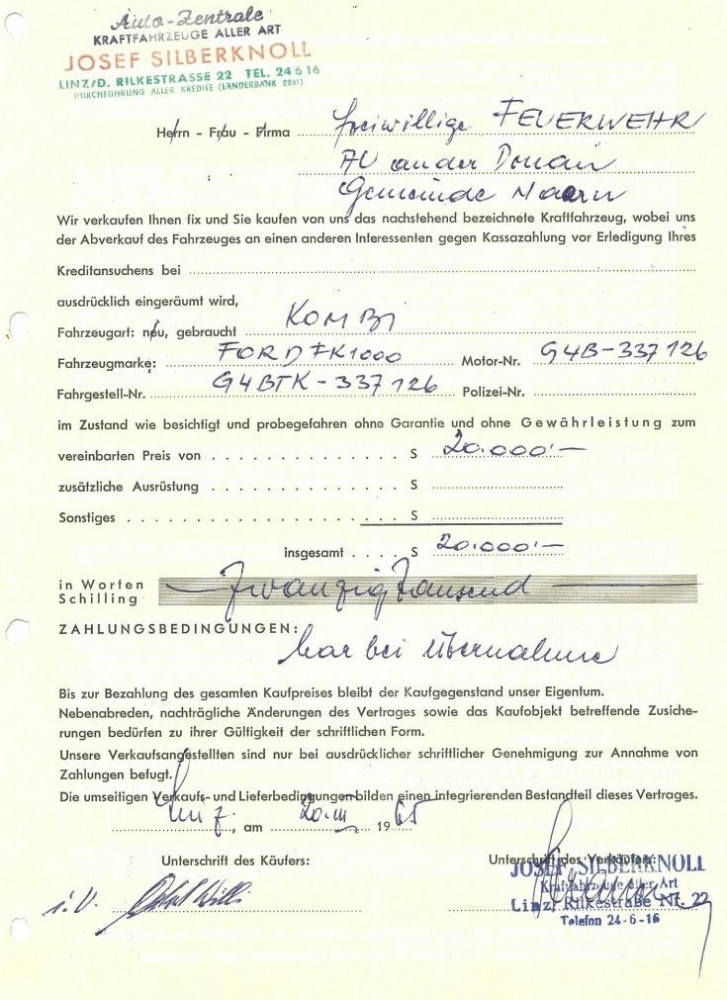 Auto-Zentrale
KRAFTFAHRZEUGE ALLER ART
JOSEF SILBERKNOLL
LINZ/D. RILKESTRASSE 22 TEL. 24 6 16
DURCHFÜHRUNG ALLER KREDITE (LÄNDERBANK 2831)
Herrn - Frau - Firma freiwillige FEUERWEHR
AU an der Donau
Gemeinde Naarn
Wir verkaufen Ihnen fix und Sie kaufen von uns das nachstehend bezeichnete Kraftfahrzeug, wobei uns
der Abverkauf des Fahrzeuges an einen anderen Interessenten gegen Kassazahlung vor Erledigung Ihres
Kreditansuchens bei
ausdrücklich eingeräumt wird,
Fahrzeugart: neu, gebraucht KOMBI
Fahrzeugmarke: FORD FK1000 Motor-Nr. G4B-337126
Fahrgestell-Nr. G4BTK-337126 Polizei-Nr.
im Zustand wie besichtigt und probegefahren ohne Garantie und ohne Gewährleistung zum
vereinbarten Preis von . . . . . . . . . . . . . . S 20.000'-
zusätzliche Ausrüstung . . . . . . . . . . . . . . S
Sonstiges . . . . . . . . . . . . . . . . . . . . S
insgesamt . . . . S 20.000'-
in Worten
Schilling — Zwanzigtausend —
ZAHLUNGSBEDINGUNGEN:
bar bei Übernahme
Bis zur Bezahlung des gesamten Kaufpreises bleibt der Kaufgegenstand unser Eigentum.
Nebenabreden, nachträgliche Änderungen des Vertrages sowie das Kaufobjekt betreffende Zusiche-
rungen bedürfen zu ihrer Gültigkeit der schriftlichen Form.
Unsere Verkaufsangestellten sind nur bei ausdrücklicher schriftlicher Genehmigung zur Annahme von
Zahlungen befugt.
Die umseitigen Verkaufs- und Lieferbedingungen bilden einen integrierenden Bestandteil dieses Vertrages.
Linz, am 20.III 1965
Unterschrift des Käufers: Unterschrift des Verkäufers:
JOSEF SILBERKNOLL
Kraftfahrzeuge aller Art
Linz, Rilkestraße Nr. 22
Telefon 24-6-16
i.V.